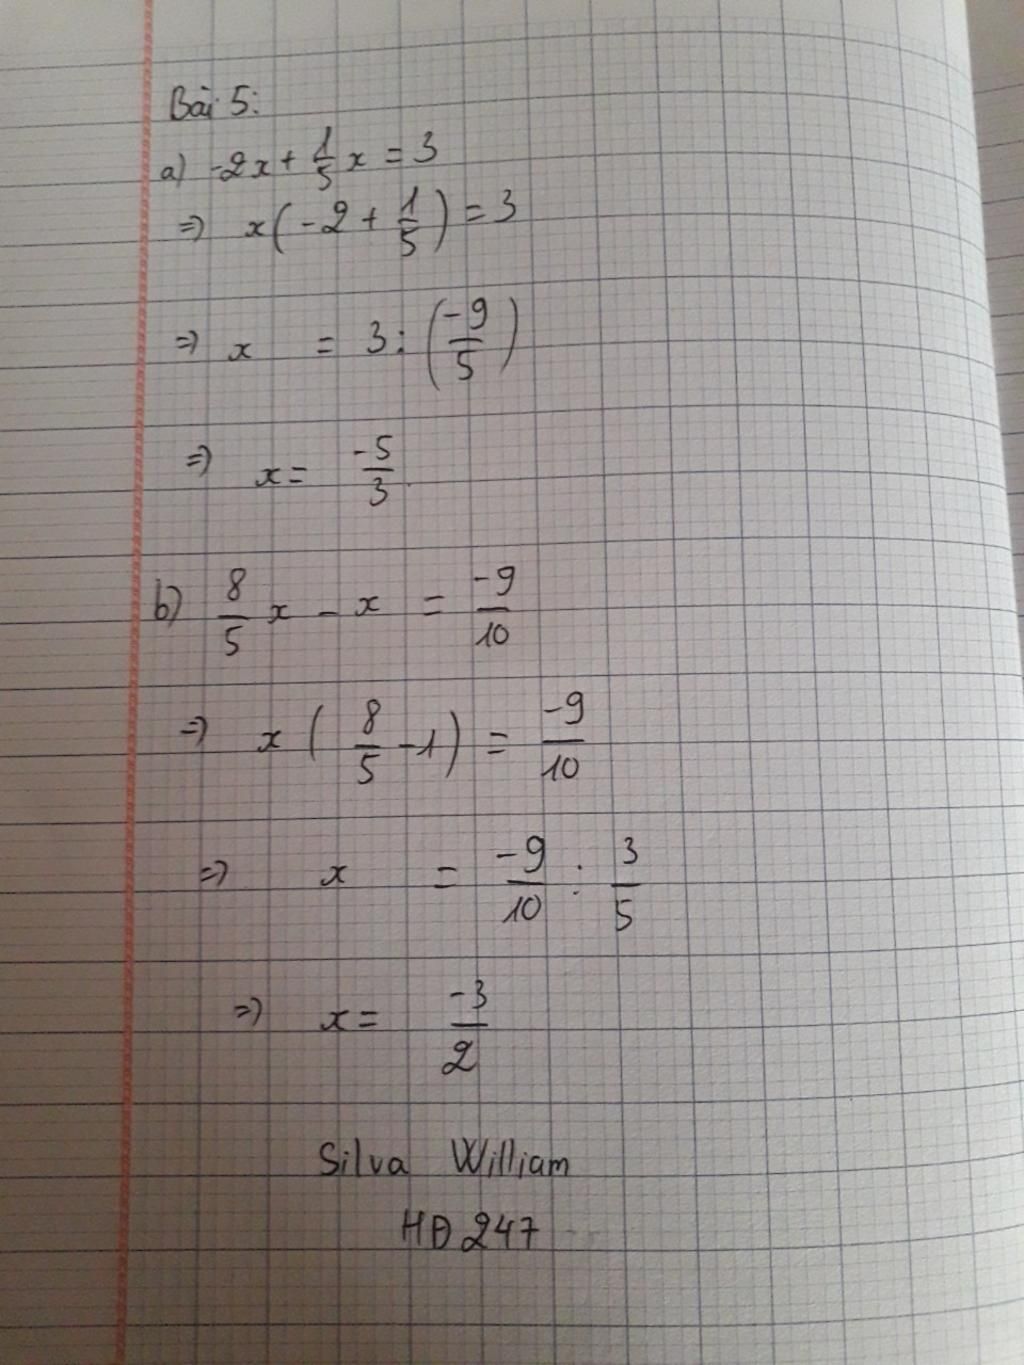 Bài 5:
a) -2x + 1/5 x = 3
=> x(-2 + 1/5) = 3
=> x = 3 : (-9/5)
=> x = -5/3
b) 8/5 x - x = -9/10
=> x(8/5 - 1) = -9/10
=> x = -9/10 : 3/5
=> x = -3/2
Silva William
HĐ 247